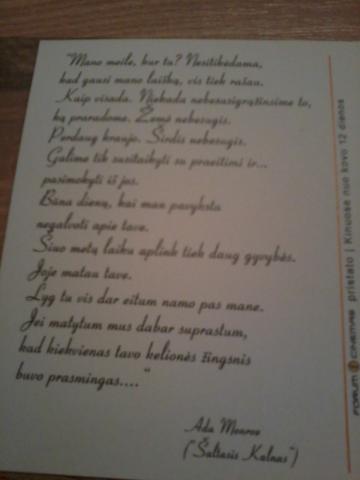 "Mano meile, kur tu? Nesitikėdama,
kad gausi mano laišką, vis tiek rašau.
Kaip visada. Niekada nebesusigrąžinsime to,
ką praradome. Žemė nebesugis.
Perdaug kraujo. Širdis nebesugis.
Galime tik susitaikyti su praeitimi ir...
pasimokyti iš jos.
Būna dienų, kai man pavyksta
negalvoti apie tave.
Šiuo metų laiku aplink tiek daug gyvybės.
Joje matau tave.
Lyg tu vis dar eitum namo pas mane.
Jei matytum mus dabar suprastum,
kad kiekvienas tavo kelionės žingsnis
buvo prasmingas...."
Ada Monroe
("Šaltasis Kalnas")
FORUM CINEMAS pristato | Kinuose nuo kovo 12 dienos